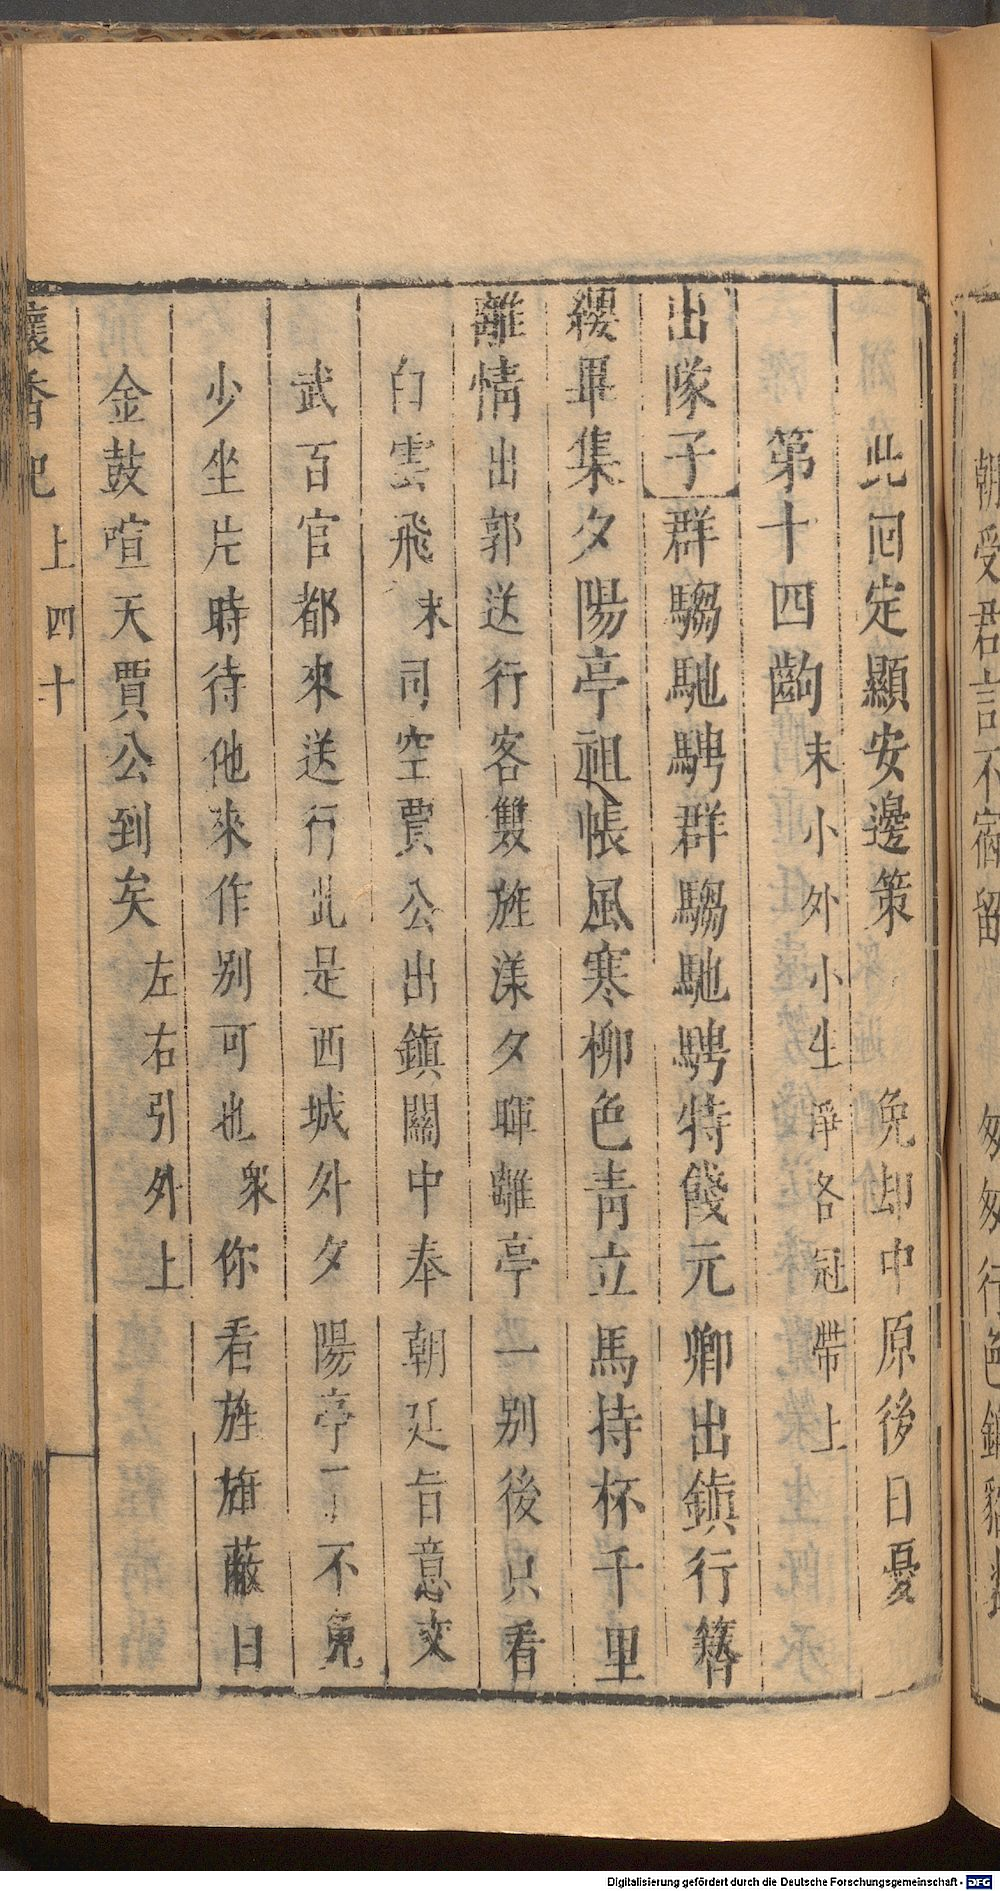 朝受君言不宿留　匆匆行色鎮
此回定顯安邊策　免却中原後日憂
第十四齣末小外小生淨各冠帶上
出隊子群騶馳騁群騶馳騁特餞元卿出鎮行簪
纓畢集夕陽亭祖帳風寒柳色靑立馬持杯千里
離情出郭送行客雙旌漾夕暉離亭一别後只看
白雲飛末司空賈公出鎮關中奉朝廷旨意文
武百官都來送行此是西城外夕陽亭了不免
少坐片時待他來作别可也衆你看旌旗蔽日
金鼓喧天賈公到矣左右引外上
懷香記　上四十
Digitalisierung gefördert durch die Deutsche Forschungsgemeinschaft - DFG